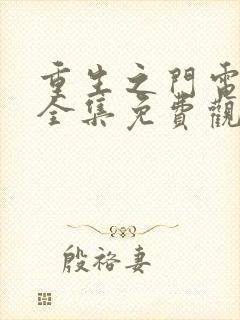 重生之門電
全集免費觀
殷裕妻